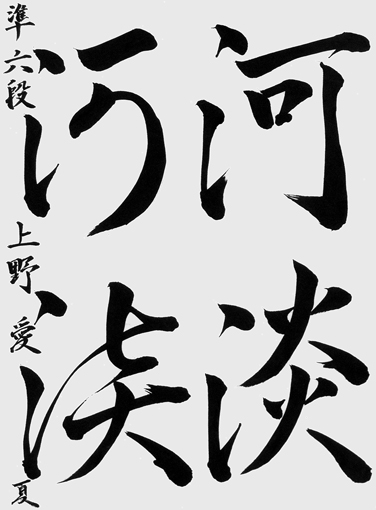 河淡
河淡
準六段 上野愛夏